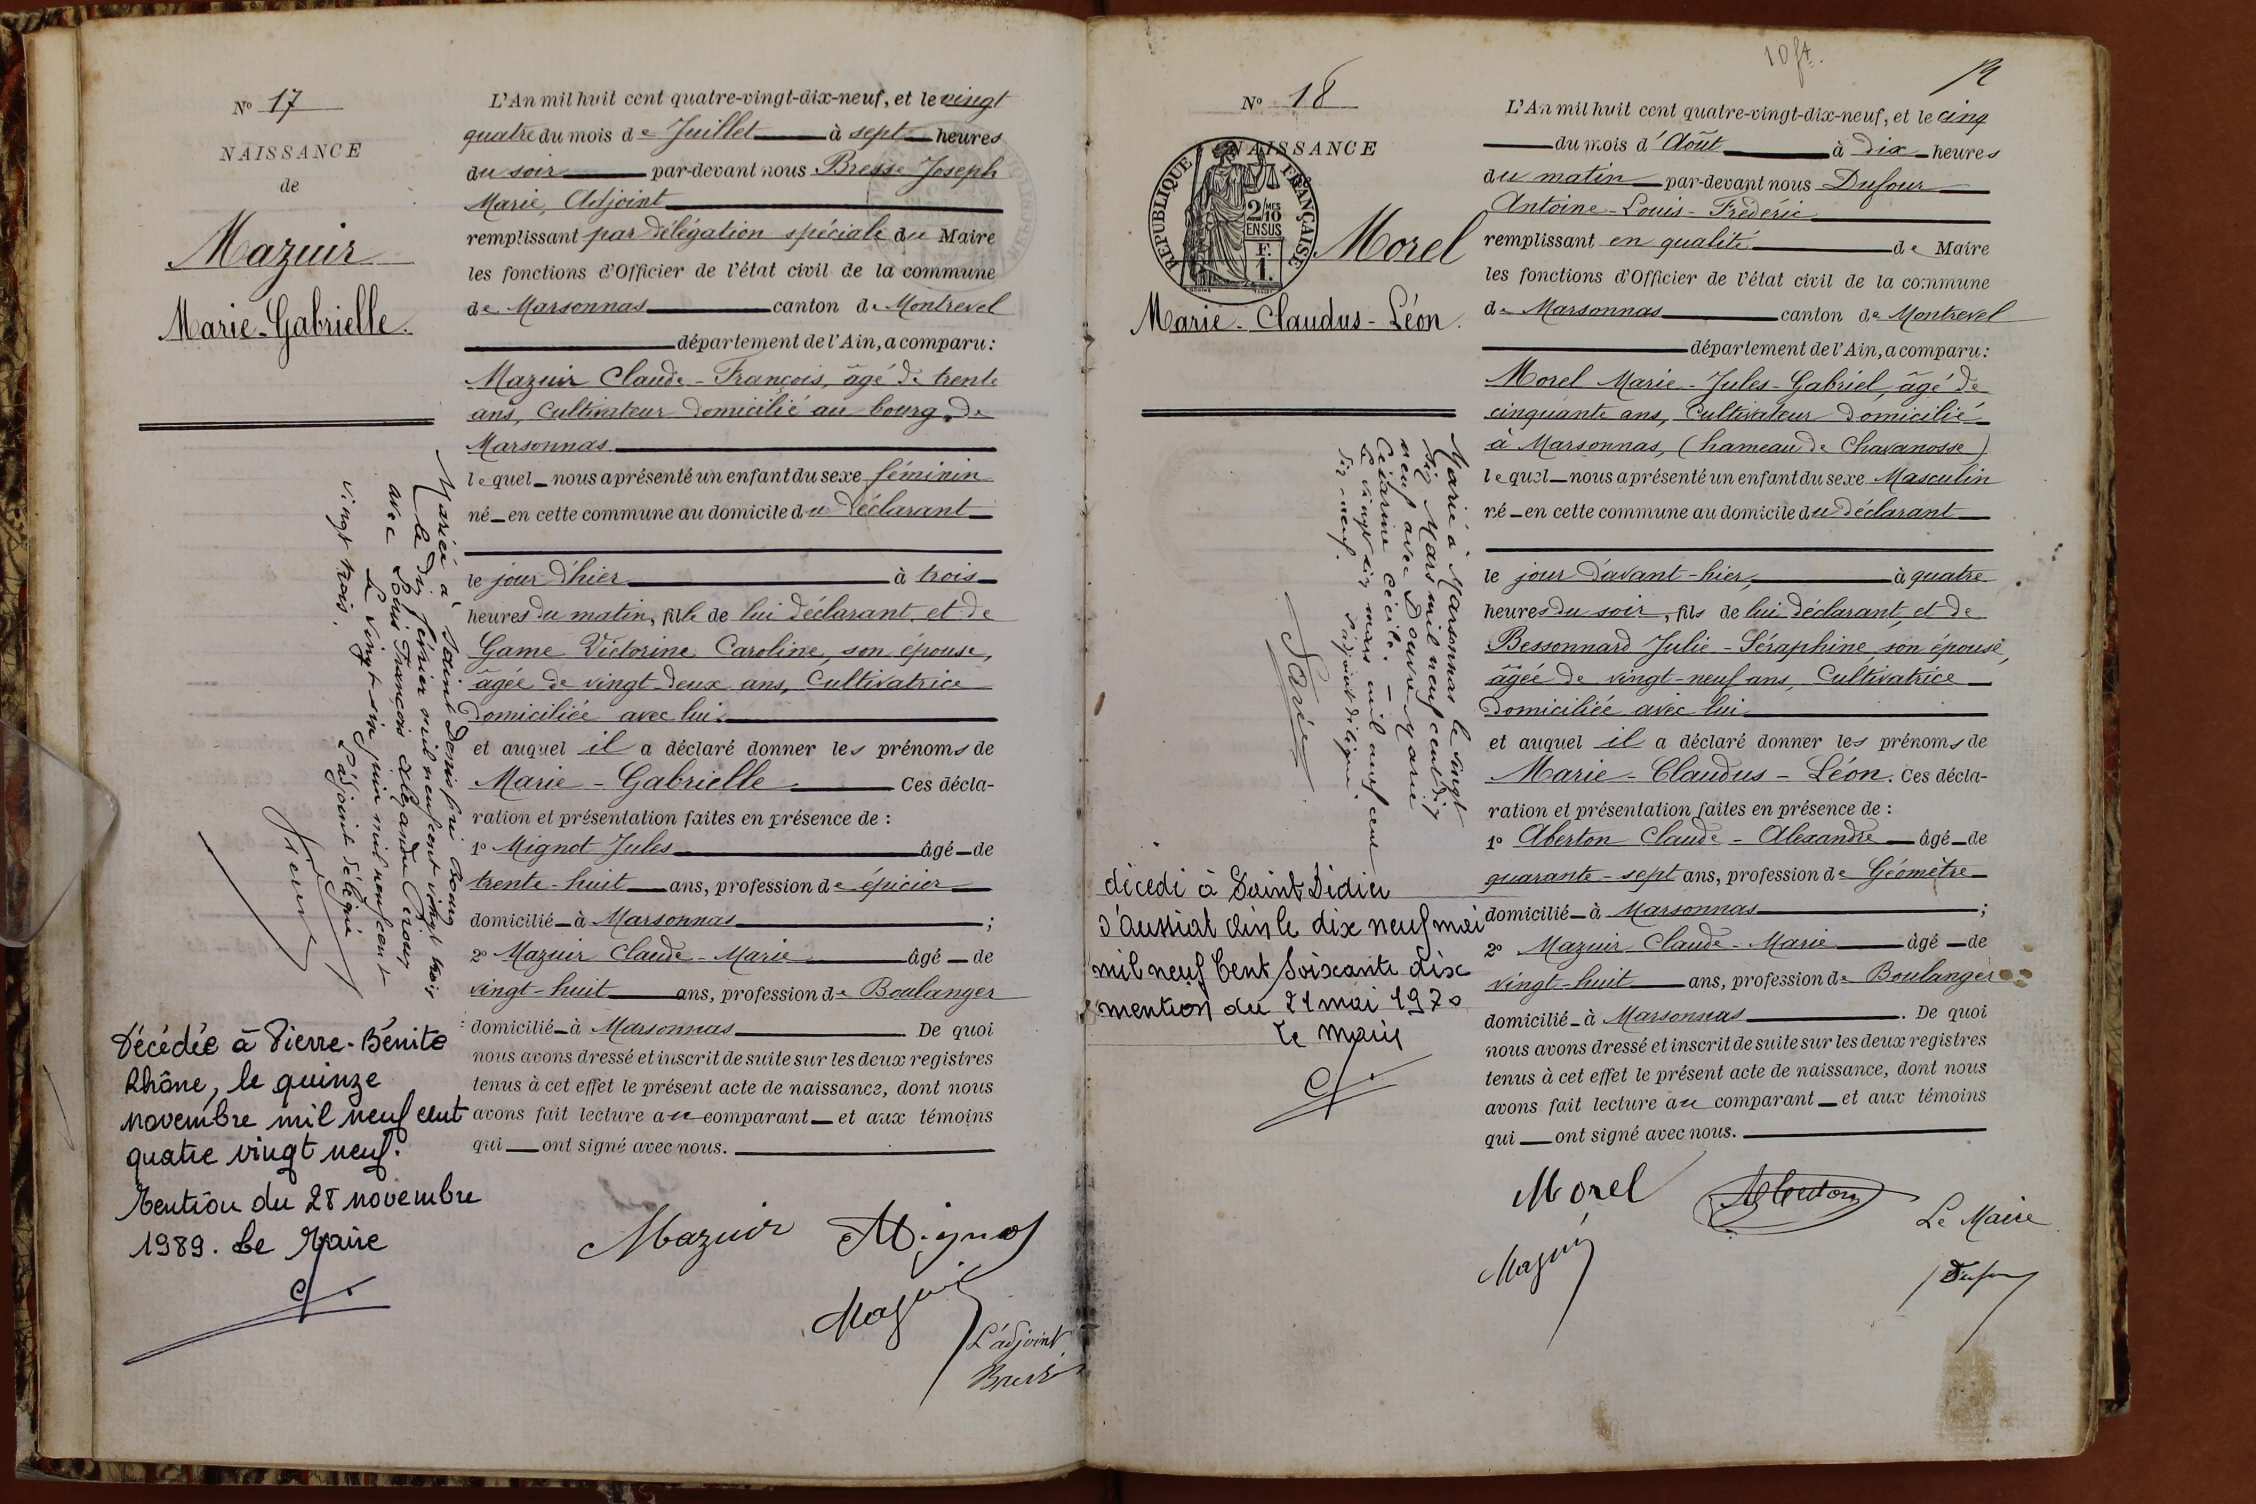 N° 17
NAISSANCE
de
Mazuir
Marie-Gabrielle.
L'An mil huit cent quatre-vingt-dix-neuf, et le vingt
quatre du mois de Juillet à sept heures
du soir par-devant nous Bresse Joseph
Marie, Adjoint
remplissant par délégation spéciale du Maire
les fonctions d'Officier de l'état civil de la commune
de Marsonnas canton de Montrevel
département de l'Ain, a comparu:
Mazuir Claude-François, âgé de trente
ans, Cultivateur domicilié au bourg de
Marsonnas
lequel nous a présenté un enfant du sexe féminin
né en cette commune au domicile du Déclarant
le jour d'hier à trois
heures du matin, fille de lui déclarant et de
Game Victorine Caroline, son épouse,
âgée de vingt-deux ans, Cultivatrice
domiciliée avec lui.
et auquel il a déclaré donner les prénoms de
Marie-Gabrielle. Ces décla-
ration et présentation faites en présence de :
1° Mignot Jules âgé de
trente-huit ans, profession de épicier
domicilié à Marsonnas ;
2° Mazuir Claude-Marie âgé de
vingt-huit ans, profession de Boulanger
domicilié à Marsonnas De quoi
nous avons dressé et inscrit de suite sur les deux registres
tenus à cet effet le présent acte de naissance, dont nous
avons fait lecture au comparant et aux témoins
qui ont signé avec nous.
Mariée à Saint Denis près Bourg
le dix février mil neuf cent vingt trois
avec Louis François Alexandre
Le vingt-six juin mil neuf cent
vingt trois.
L'adjoint délégué
Décédée à Pierre-Bénite
Rhône, le quinze
novembre mil neuf cent
quatre vingt neuf.
Mention du 28 novembre
1989. Le Maire
Mazuir Mignot
Mazuir
L'adjoint
Bresse
10 ft.
N° 18
NAISSANCE
REPUBLIQUE FRANÇAISE
2/10 MES
EN SUS
F.
1.
Morel
Marie-Claudus-Léon.
L'An mil huit cent quatre-vingt-dix-neuf, et le cinq
du mois d'Août à dix heures
du matin par-devant nous Dufour
Antoine-Louis-Frédéric
remplissant en qualité de Maire
les fonctions d'Officier de l'état civil de la commune
de Marsonnas canton de Montrevel
département de l'Ain, a comparu:
Morel Marie-Jules-Gabriel, âgé de
cinquante ans, Cultivateur domicilié
à Marsonnas, (hameau de Chavanosse)
lequel nous a présenté un enfant du sexe Masculin
né en cette commune au domicile du Déclarant
le jour d'avant-hier, à quatre
heures du soir, fils de lui déclarant, et de
Bessonnard Julie-Séraphine, son épouse,
âgée de vingt-neuf ans, Cultivatrice
domiciliée avec lui
et auquel il a déclaré donner les prénoms de
Marie-Claudus-Léon. Ces décla-
ration et présentation faites en présence de :
1° Aberton Claude-Alexandre âgé de
quarante-sept ans, profession de Géomètre
domicilié à Marsonnas ;
2° Mazuir Claude-Marie âgé de
vingt-huit ans, profession de Boulanger
domicilié à Marsonnas. De quoi
nous avons dressé et inscrit de suite sur les deux registres
tenus à cet effet le présent acte de naissance, dont nous
avons fait lecture au comparant et aux témoins
qui ont signé avec nous.
Marié à Marsonnas le vingt
six Mars mil neuf cent dix
neuf avec Douvre Marie
Célarine Cécile.
Le vingt six mars mil neuf cent
dix-neuf. L'adjoint délégué.
décédé à Saint Didier
d'Aussiat Ain le dix neuf mai
mil neuf Cent Soixante dix
mention du 21 mai 1970
le maire
Morel Aberton
Mazuir
Le Maire
Dufour